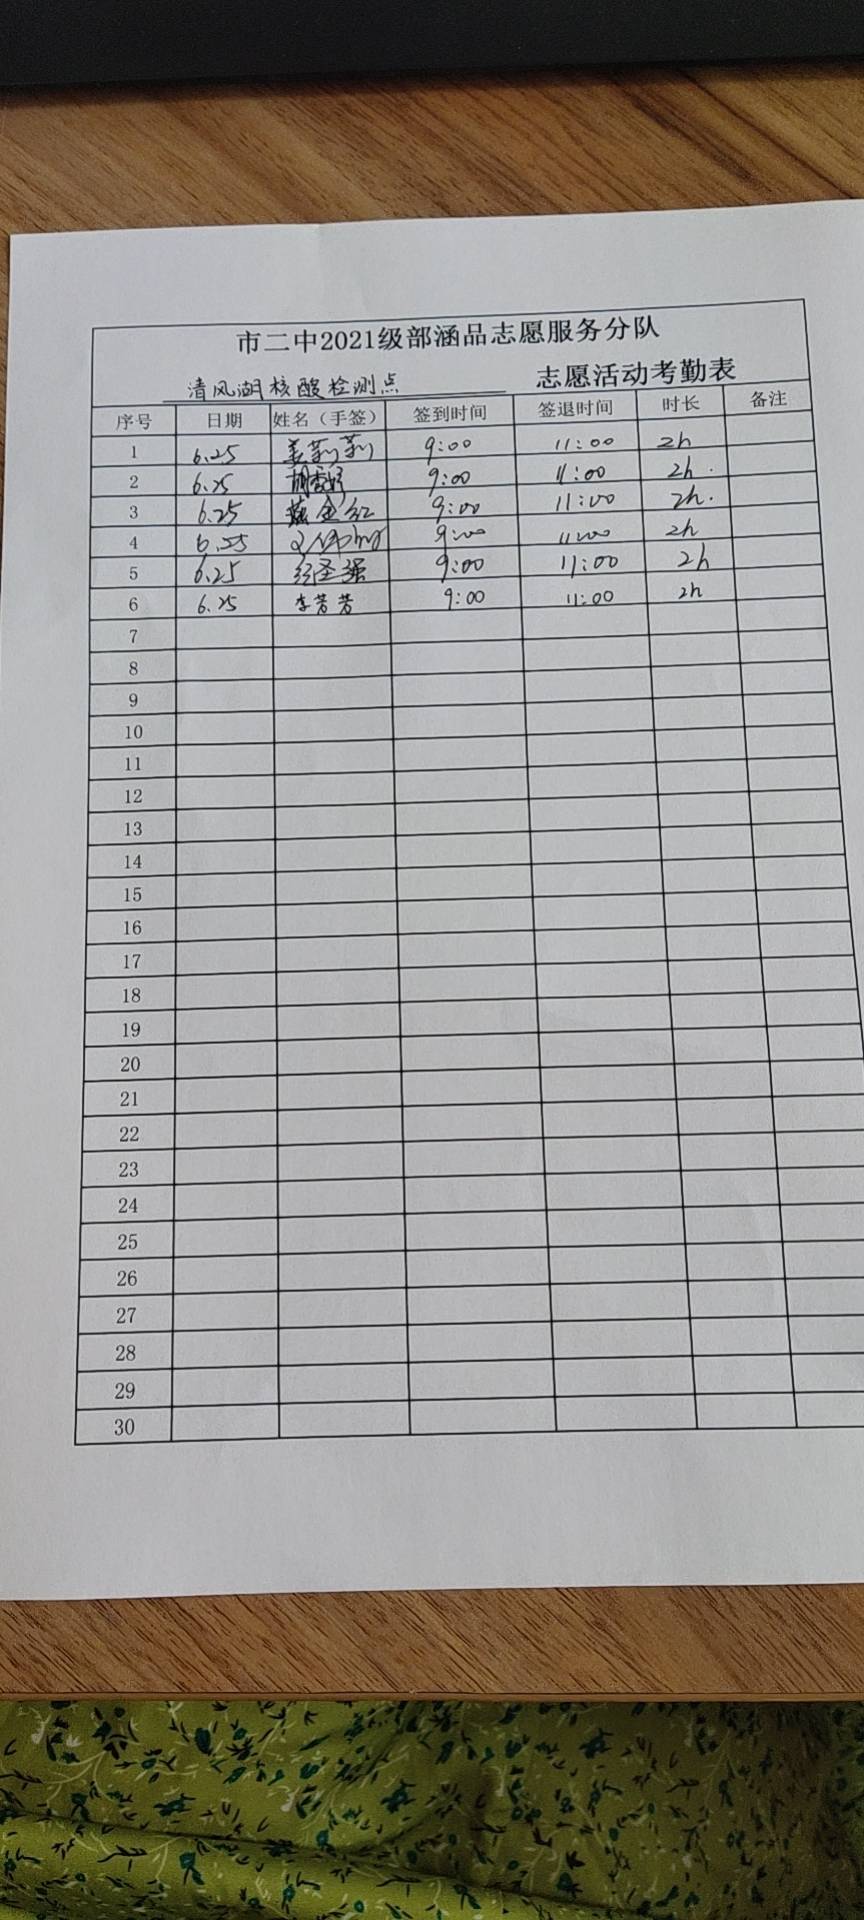 市二中2021级部涵品志愿服务分队
清风湖核酸检测点 志愿活动考勤表
序号 日期 姓名（手签） 签到时间 签退时间 时长 备注
1 6.25 姜莉莉 9:00 11:00 2h
2 6.25 9:00 11:00 2h.
3 6.25 9:00 11:00 2h.
4 6.25 9:00 11:00 2h
5 6.25 9:00 11:00 2h
6 6.25 李芳芳 9:00 11:00 2h
7
8
9
10
11
12
13
14
15
16
17
18
19
20
21
22
23
24
25
26
27
28
29
30